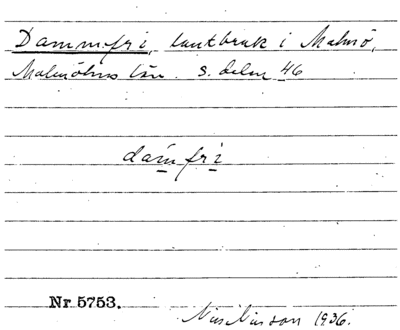 Dammfri, lantbruk i Malmö,
Malmöhus län. S. delen 46
damfri
Nr 5753.
Nils Nilsson 1936.